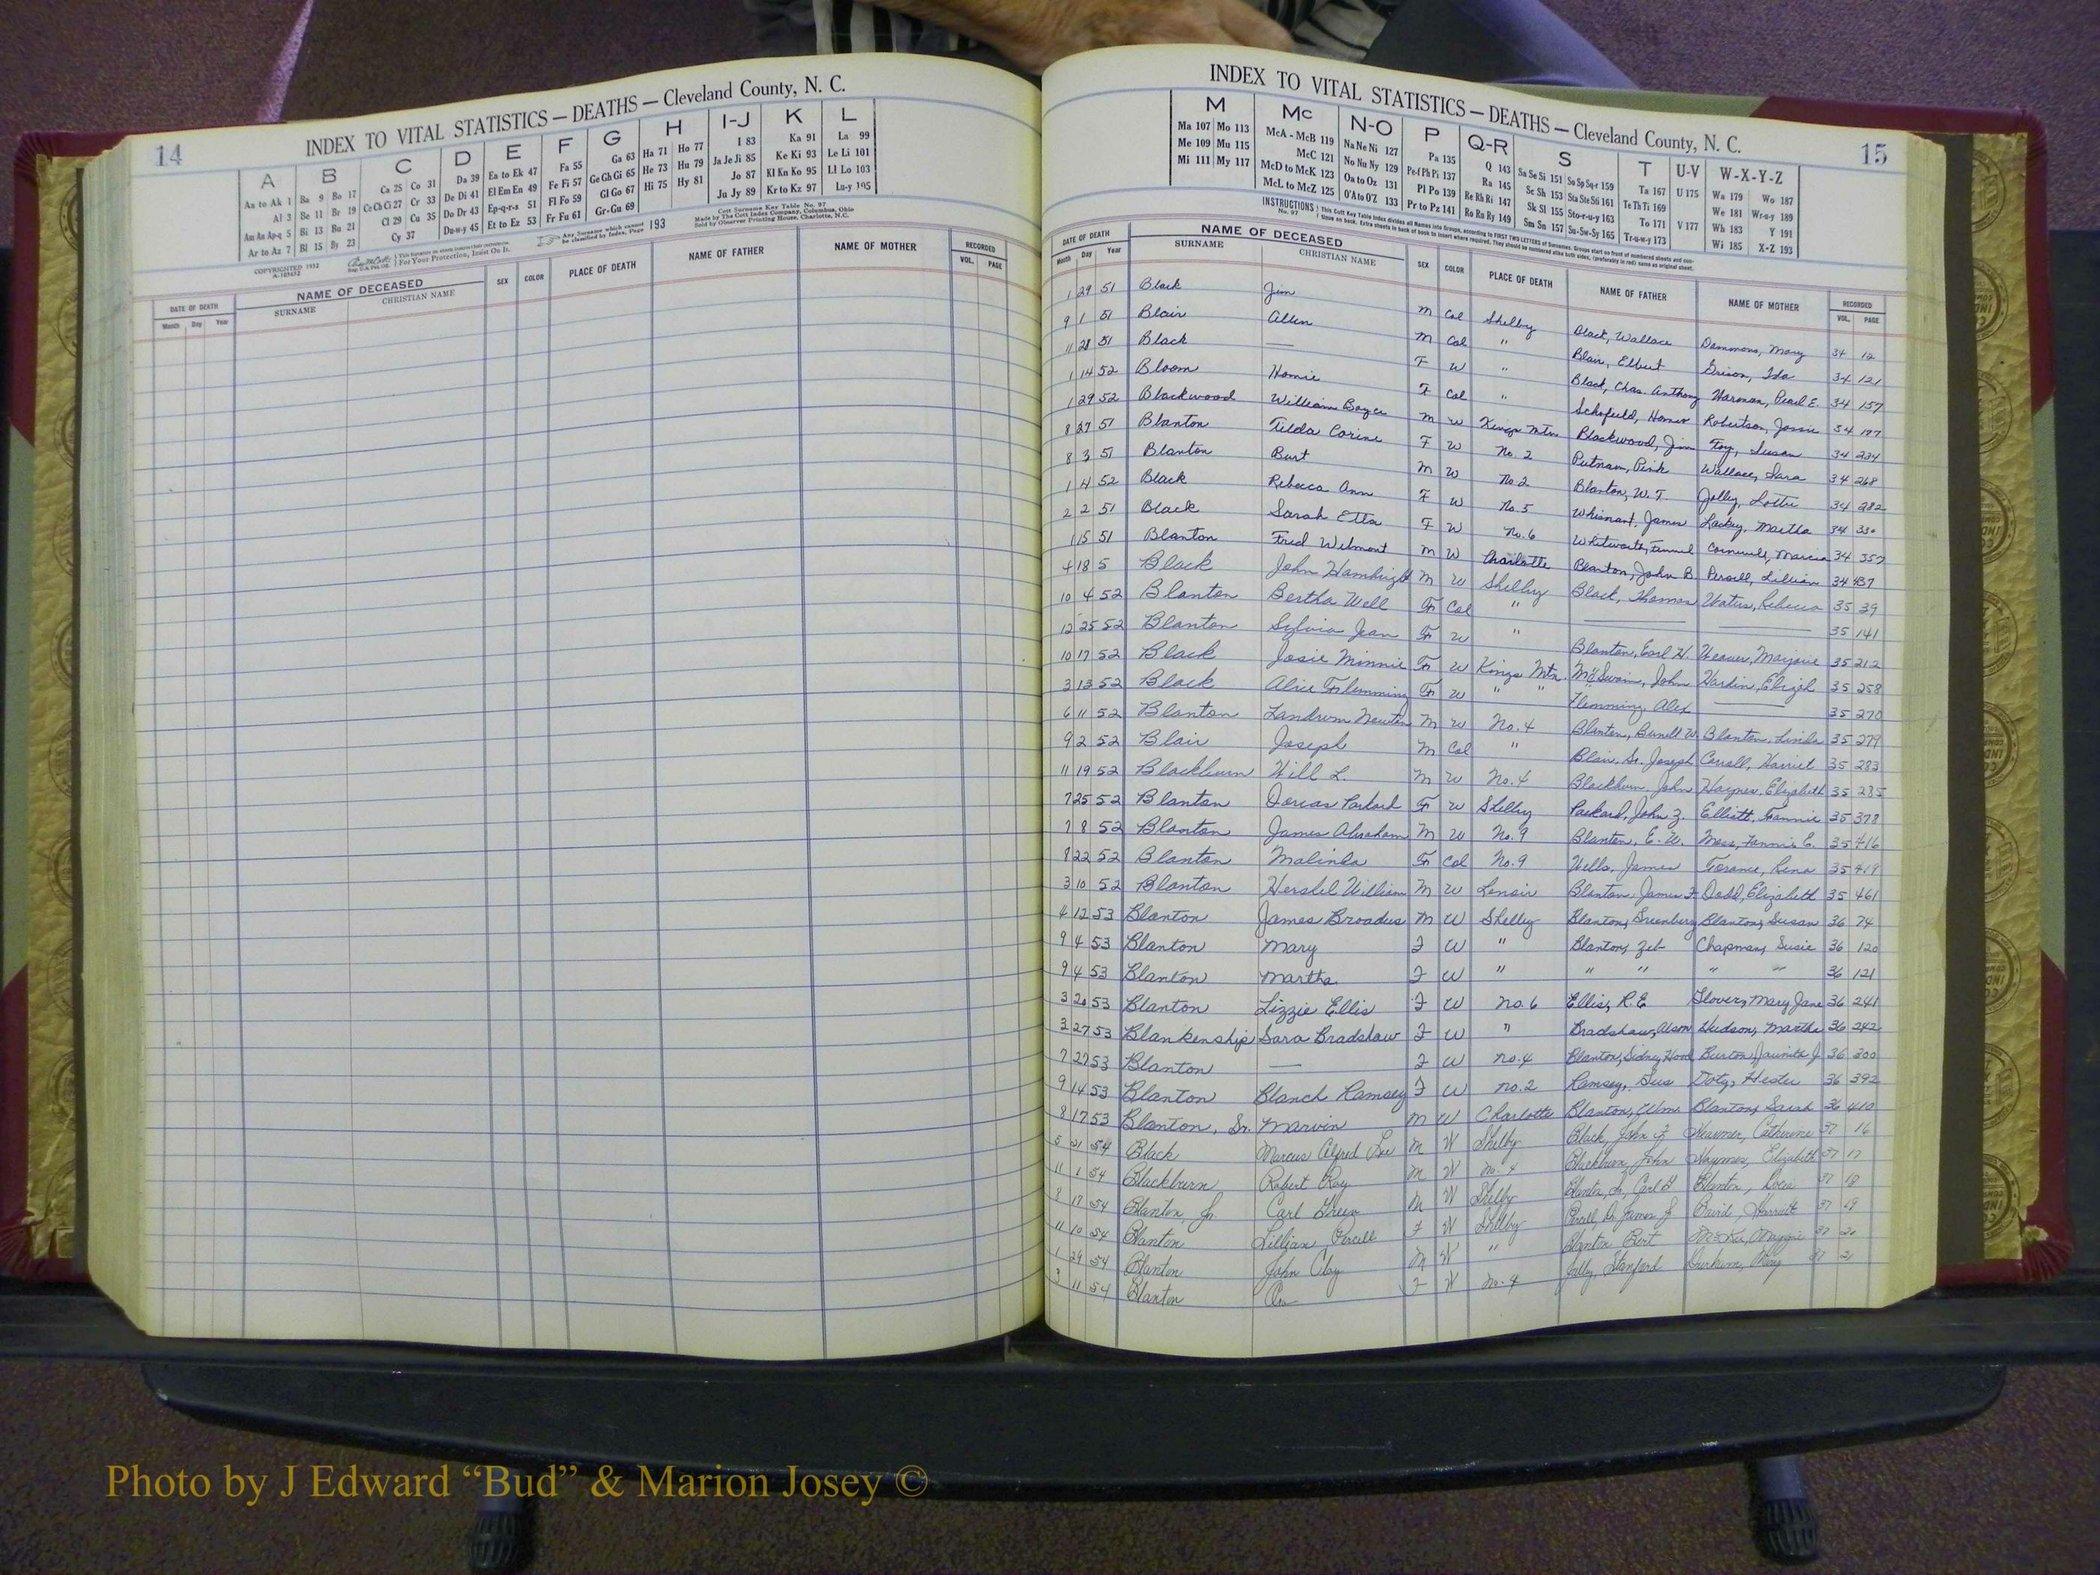 14
INDEX TO VITAL STATISTICS — DEATHS — Cleveland County, N. C.
A B C D E F G H I-J K L
Aa to Ak 1 Ba 9 Bo 17 Ca 25 Co 31 Da 39 Ea to Ek 47 Fa 55 Ga 63 Ha 71 Ho 77 I 83 Ka 91 La 99
Al 3 Be 11 Br 19 Ce Ch Ci 27 Cr 33 De Di 41 El Em En 49 Fe Fi 57 Ge Gh Gi 65 He 73 Hu 79 Ja Je Ji 85 Ke Ki 93 Le Li 101
Am An Ap-q 5 Bi 13 Bu 21 Cl 29 Cu 35 Do Dr 43 Ep-q-r-s 51 Fl Fo 59 Gl Go 67 Hi 75 Hy 81 Jo 87 Kl Kn Ko 95 Ll Lo 103
Ar to Az 7 Bl 15 By 23 Cy 37 Du-w-y 45 Et to Ez 53 Fr Fu 61 Gr-Gu 69 Ju Jy 89 Kr to Kz 97 Lu-y 105
COPYRIGHTED 1932
For Your Protection, Insist On It.
Any Surname which cannot be classified by Index, Page 193
Cott Surname Key Table No. 97
Made by The Cott Index Company, Columbus, Ohio
Sold by Observer Printing House, Charlotte, N.C.
DATE OF DEATH NAME OF DECEASED SEX COLOR PLACE OF DEATH NAME OF FATHER NAME OF MOTHER RECORDED
Month Day Year SURNAME CHRISTIAN NAME VOL. PAGE
INDEX TO VITAL STATISTICS — DEATHS — Cleveland County, N. C.
15
M Mc N-O P Q-R S T U-V W-X-Y-Z
Ma 107 Mo 113 McA - McB 119 Na Ne Ni 127 Pa 135 Q 143 Sa Se Si 151 So Sp Sq-r 159 Ta 167 U 175 Wa 179 Wo 187
Me 109 Mu 115 McC 121 No Nu Ny 129 Pe-f Ph Pi 137 Ra 145 Sc Sh 153 Sta Ste Sti 161 Te Th Ti 169 We 181 Wr-u-y 189
Mi 111 My 117 McD to McK 123 Oa to Oz 131 Pl Po 139 Re Rh Ri 147 Sk Sl 155 Sto-r-u-y 163 To 171 V 177 Wh 183 Y 191
McL to McZ 125 O'A to O'Z 133 Pr to Pz 141 Ro Ru Ry 149 Sm Sn 157 Su-Sw-Sy 165 Tr-u-w-y 173 Wi 185 X-Z 193
INSTRUCTIONS No. 97
DATE OF DEATH NAME OF DECEASED SEX COLOR PLACE OF DEATH NAME OF FATHER NAME OF MOTHER RECORDED
Month Day Year SURNAME CHRISTIAN NAME VOL. PAGE
1 29 51 Black Jim M Col Shelby Black, Wallace Dammons, Mary 34 12
9 1 51 Blair Allen M Col " Blair, Elbert Ida 34 121
11 28 51 Black — F W " Black, Chas. Anthony Harmon, Pearl E. 34 157
1 14 52 Bloom F Col " Schofield, Homer Robertson, Jessie 34 197
1 29 52 Blackwood William Boyce M W Kings Mtn Blackwood, Jim Foy, Susan 34 234
8 27 51 Blanton Tilda Corine F W No. 2 Putnam, Pink Wallace, Sara 34 268
8 3 51 Blanton Burt M W No. 2 Blanton, W. T. Jolley, Lottie 34 282
1 4 52 Black Rebecca Ann F W No. 5 Whisnant, James Lackey, Martha 34 330
2 2 51 Black Sarah Etta F W No. 6 Cornwell, Marcia 34 357
1 15 51 Blanton Fred Wilmont M W Charlotte Blanton, John B. Lillian 34 437
4 18 5 Black John Hambright M W Shelby Black, Thomas Waters, Rebecca 35 39
10 4 52 Blanton Bertha Well F Col " — — 35 141
12 25 52 Blanton Sylvia Jean F W " Blanton, Earl H. Weaver, Marjorie 35 212
10 17 52 Black Josie Minnie F W Kings Mtn. McSwain, John Hardin, 35 258
3 13 52 Black Alice Flemming F W " " Flemming, Alex — 35 270
6 11 52 Blanton Landrum Newton M W No. 4 Blanton, Burrell W. Blanton, Linda 35 279
9 2 52 Blair Joseph M Col " Blair, Sr. Joseph Harriet 35 283
11 19 52 Blackburn Will L. M W No. 4 Blackburn, John Haynes, Elizabeth 35 285
7 25 52 Blanton Dorcas Packard F W Shelby Packard, John Z. Elliott, Fannie 35 378
7 8 52 Blanton James Abraham M W No. 9 Blanton, E. W. Moss, Fannie E. 35 416
8 22 52 Blanton Malinda F Col No. 9 Wells, James Torance, Rena 35 419
3 10 52 Blanton Hershel William M W Lenoir Blanton, James F. Dodd, Elizabeth 35 461
4 12 53 Blanton James Broadus M W Shelby Blanton, Greenberry Blanton, Susan 36 74
9 4 53 Blanton Mary F W " Blanton, Zeb Chapman, Susie 36 120
9 4 53 Blanton Martha F W " " " " " 36 121
3 20 53 Blanton Lizzie Ellis F W No. 6 Ellis, R. E. Glover, Mary Jane 36 241
3 27 53 Blankenship Sara Bradshaw F W " Bradshaw, Alson Hudson, Martha 36 242
7 27 53 Blanton — F W No. 4 Blanton, Sidney Hood Burton, Jaunita J. 36 300
9 14 53 Blanton Blanch Ramsey F W No. 2 Ramsey, Gus Doty, Hester 36 392
8 17 53 Blanton, Sr. Marvin M W Charlotte Blanton, Wm. Blanton, Sarah 36 410
5 21 54 Black Marcus Alfred Lee M W Shelby Black, John F. Catherine 37 16
11 1 54 Blackburn Robert Roy M W No. 4 Blackburn, John Haynes, Elizabeth 37 17
8 18 54 Blanton, Jr. Carl Green M W Shelby Blanton, Sr., Carl G. Blanton, 37 18
11 10 54 Blanton Lillian F W Shelby James David, Harriett 37 19
1 29 54 Blanton John Clay M W " Blanton, Burt McKee, Maggie 37 20
3 11 54 Blanton F W No. 4 Jolly, Stanford Durham, Mary 37 21
Photo by J Edward “Bud” & Marion Josey ©